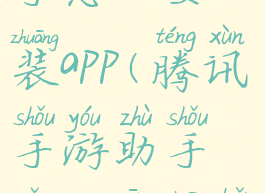 zhuāng téng xùn
装app(腾讯
shǒu yóu zhù shǒu
手游助手